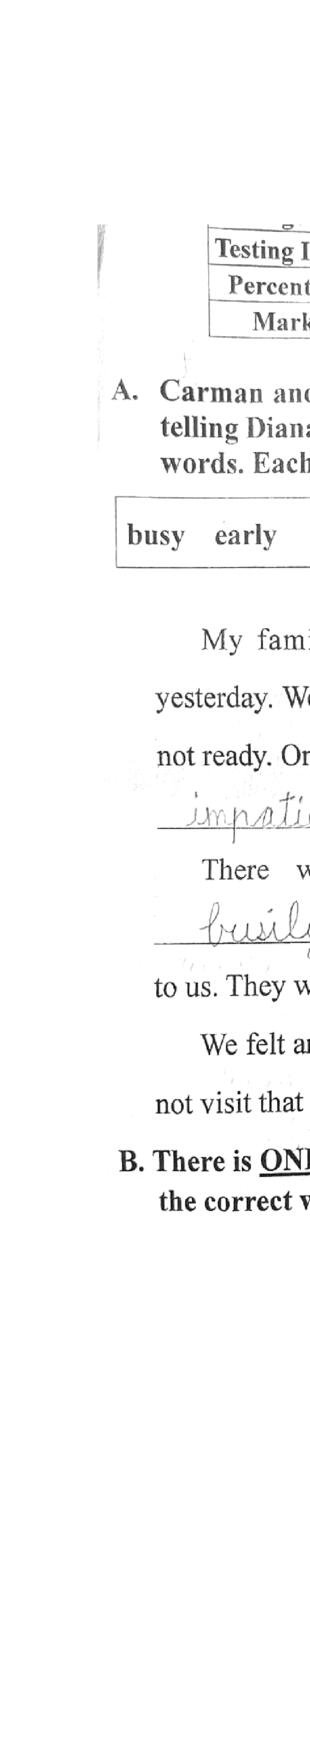 Testing
Percent
Mark
A. Carman and
telling Diana
words. Each
busy early
My
yesterday. We
not ready.
There
busily
to us. They
We felt
not visit that
B. There is
the correct